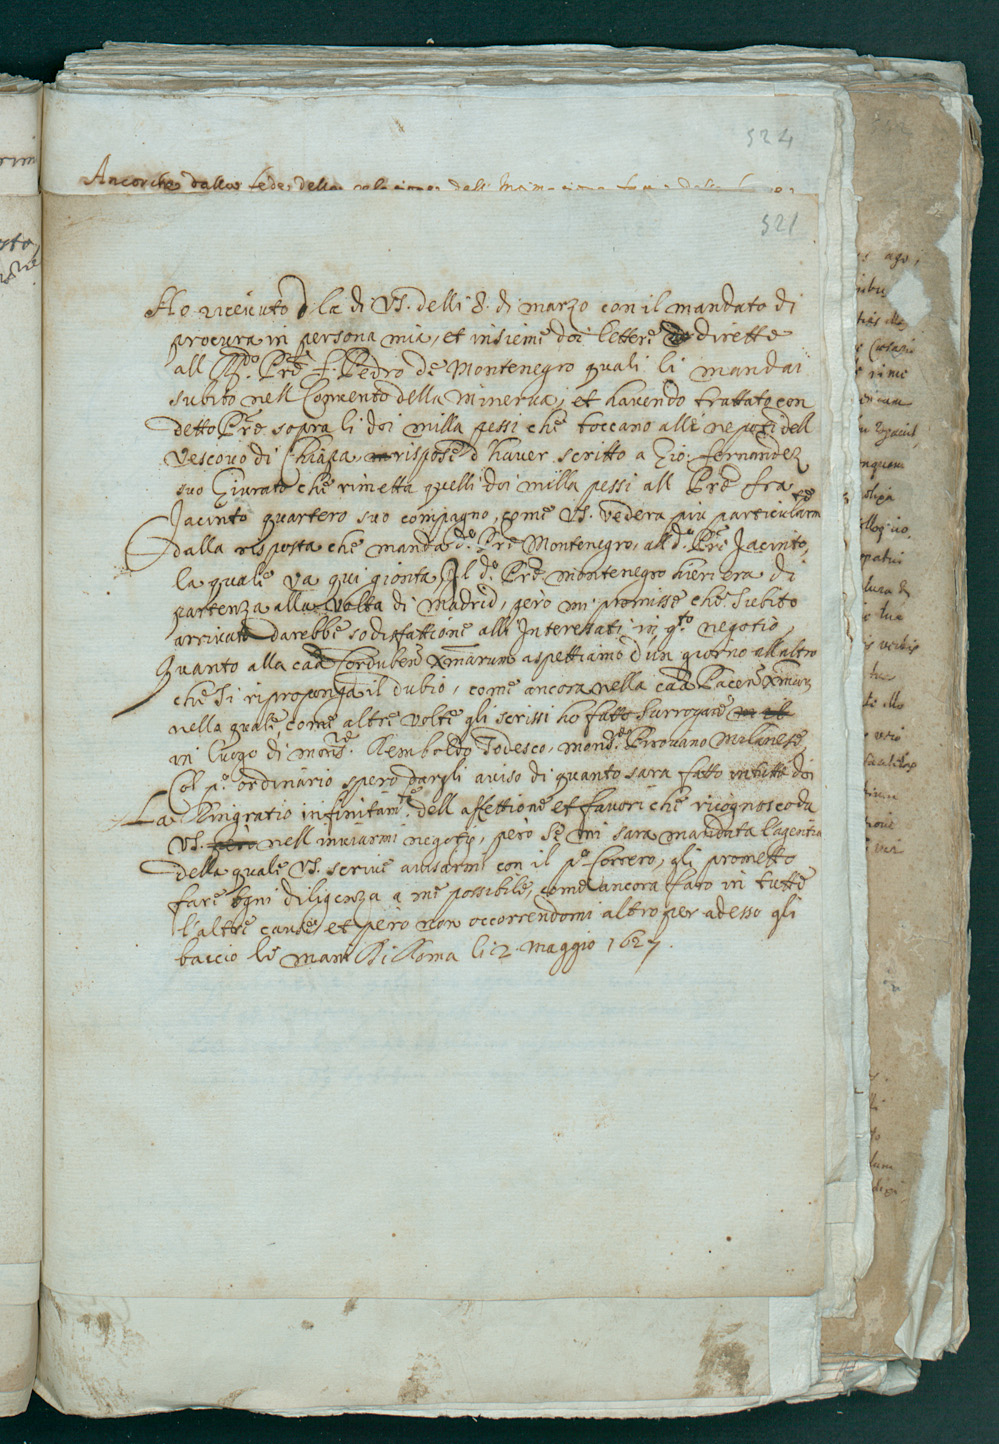 524
Ancorche dalla fede della relatione dell
521
Ho riceiuto la di VS. delli 8. di marzo con il mandato di
procura in persona mia, et insieme doi lettere dirette
all R.do Pre f. Pedro de Montenegro quali li mandai
subito nell Convento della Minerva, et havendo trattato con
detto Pre sopra li doi milla pessi che toccano alli nepoti dell
Vescovo di Chiapa rispose d'haver scritto a Gio. fernandez
suo Giurato che rimetta quelli doi milla pessi all Pre fra
Jacinto quartero suo compagno, come VS. vedera piu particularm.te
dalla risposta che manda d.o Pre Montenegro, all d.o Pre Jacinto,
la quale va qui gionta Il d.o Pre montenegro hieri era di
partenza alla volta di Madrid, però mi promisse che subito
arrivato darebbe sodisfattione alli Interessati in q.to negotio,
Quanto alla caa Cordubens Xmarum aspettiamo d'un giorno all altro
che si riproponga il dubio, come ancora nella caa Pacens Xmarum
nella quale, come altre volte gli scrissi ho fatto surrogare in il
in luogo di mons.re Remboldo Todesco, mons.re Pirovano Milanese,
Col p.o ordinario spero dargli aviso di quanto sara fatto in tutte doi
La Ringratio infinitam.te dell affettione et favori che ricognosco da
VS. però nell inviarmi negotii, però se mi sara mandata l'agentia
della quale VS. scrive avisarmi con il p.o Correro, gli prometto
fare ogni diligenza a me possibile, come ancora farò in tutte
l'altre cause, et però non occorrendomi altro per adesso gli
baccio le mani Di Roma li 2 Maggio 1627.